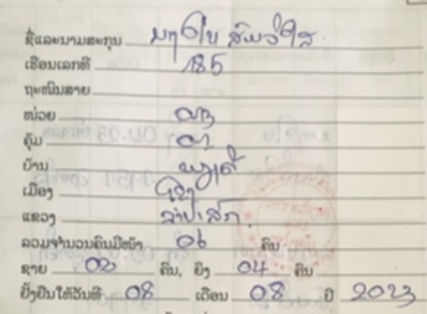 ຊື່ແລະນາມສະກຸນ
ເຮືອນເລກທີ 185
ຖະໜົນສາຍ
ໜ່ວຍ 03
ຄຸ້ມ 01
ບ້ານ
ເມືອງ
ແຂວງ ຈຳປາສັກ
ລວມຈຳນວນຄົນມີໜ້າ 06 ຄົນ
ຊາຍ 02 ຄົນ, ຍິງ 04 ຄົນ
ຢັ້ງຢືນໃຫ້ວັນທີ 08 ເດືອນ 08 ປີ 2023